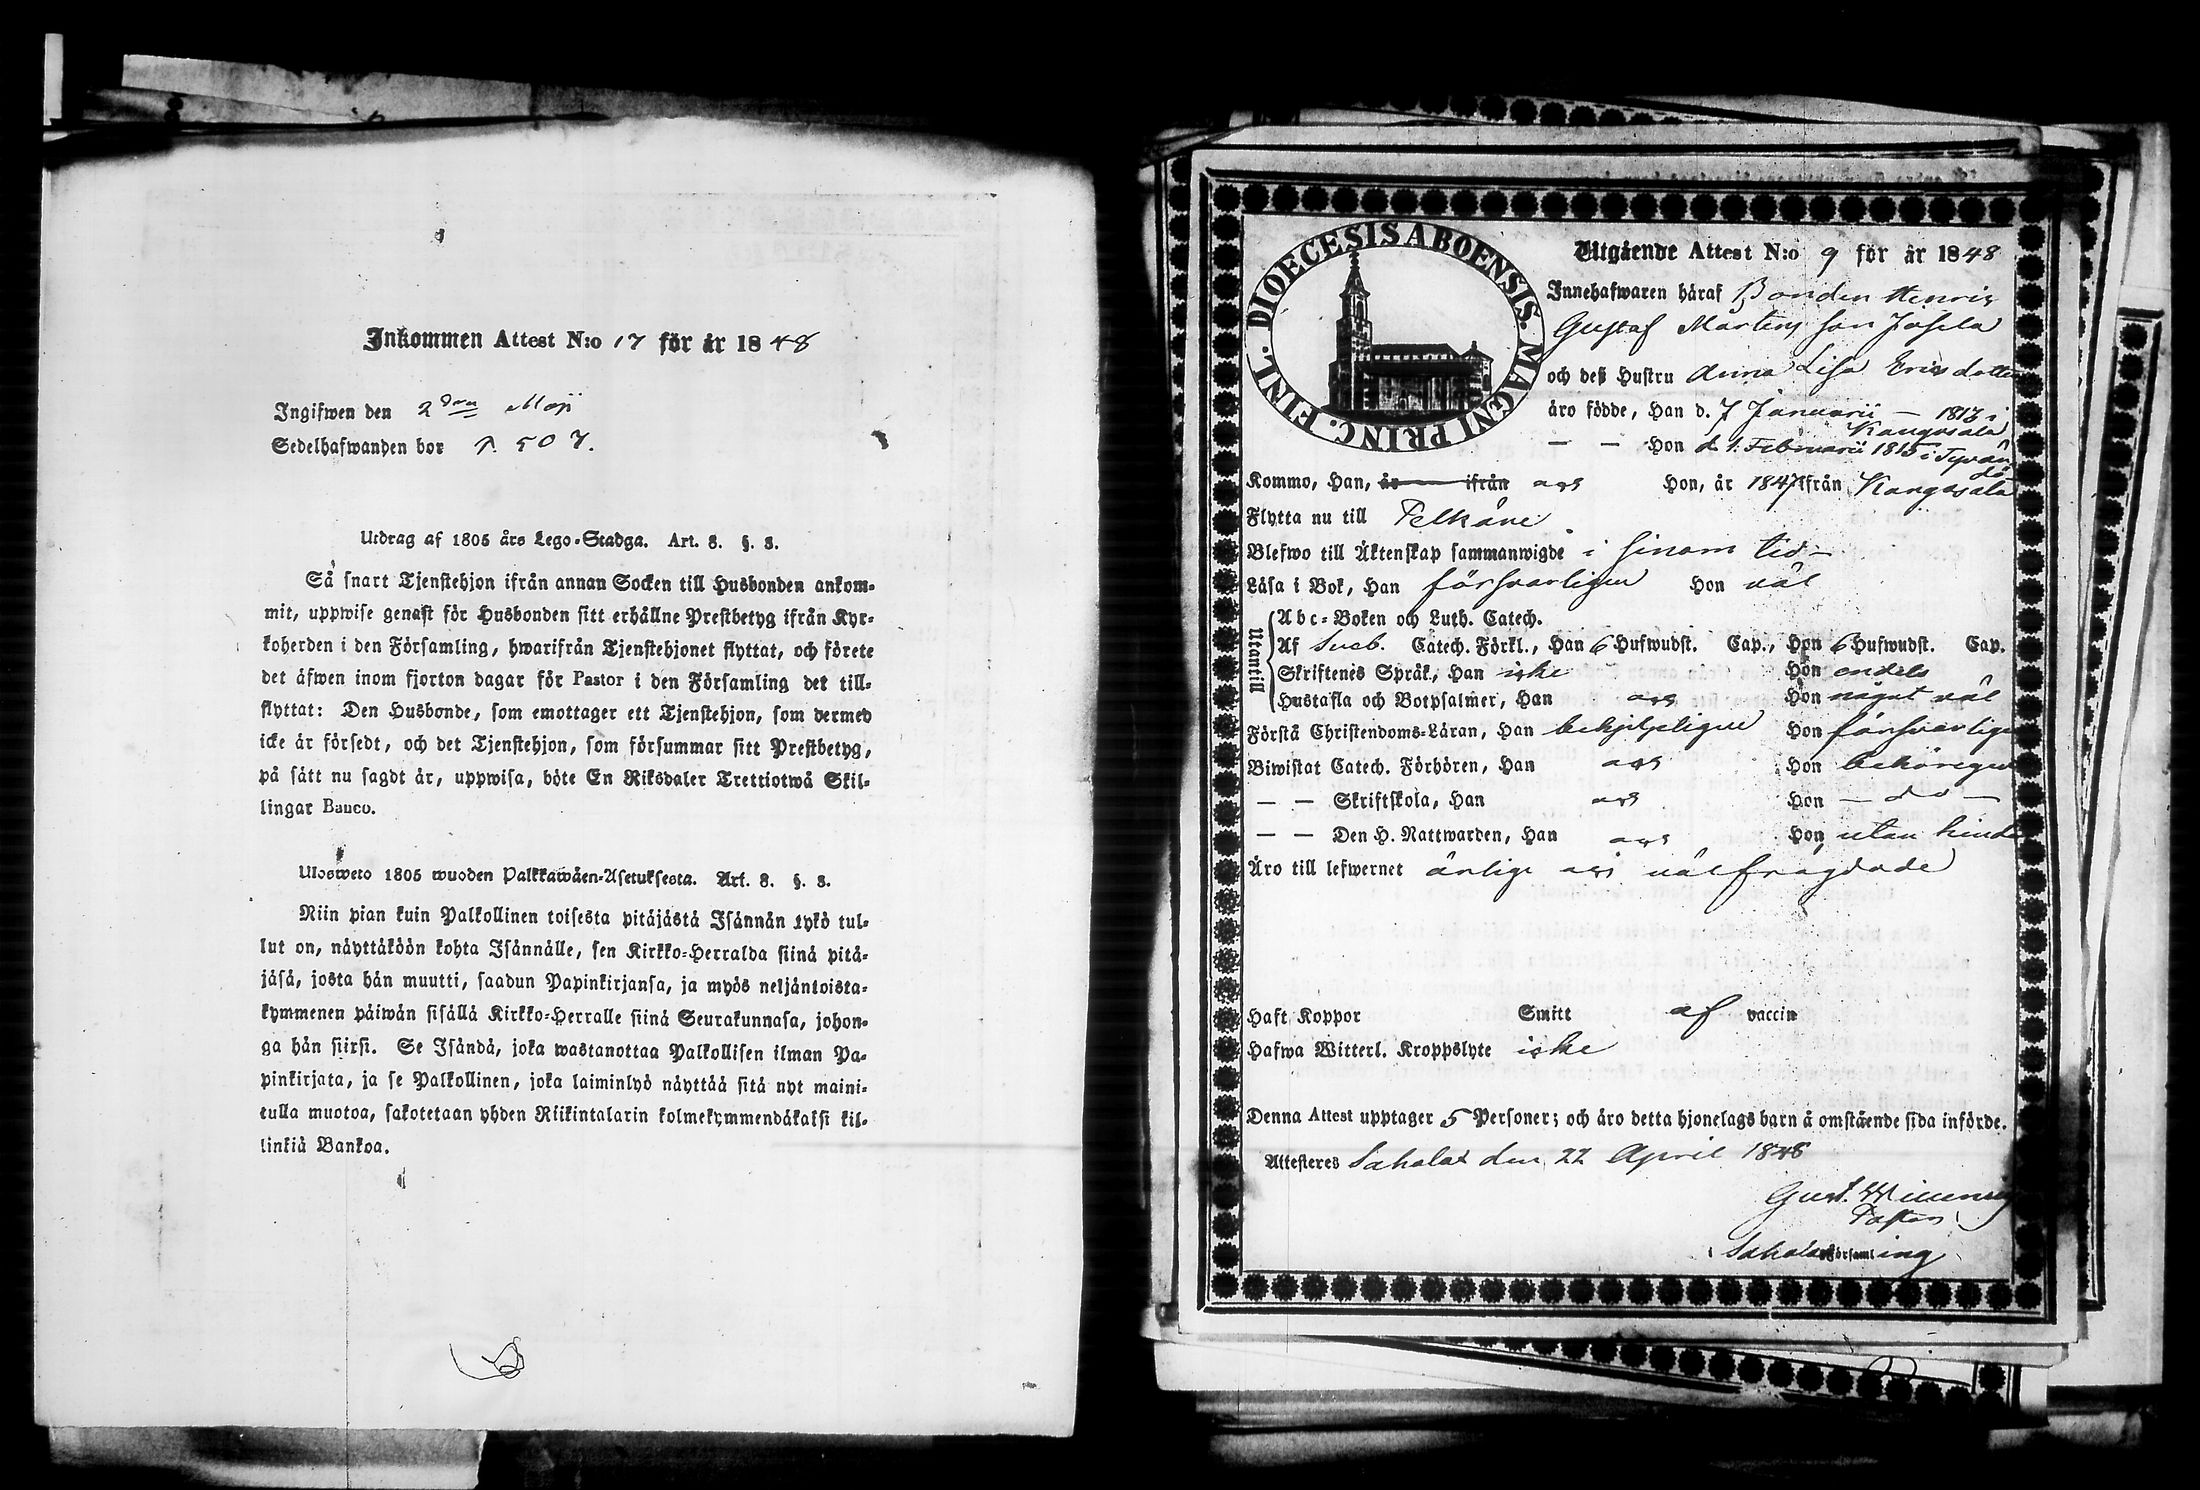 Inkommen Attest N:o 17 för år 1848
Ingifwen den 2dra Maji
Sedelhafwanden bor p. 507.
Utdrag af 1805 års Lego-Stadga. Art. 8. §. 3.
Så snart Tjenstehjon ifrån annan Socken till Husbonden ankom-
mit, uppwise genast för Husbonden sitt erhållne Prestbetyg ifrån Kyr-
koherden i den Församling, hwarifrån Tjenstehjonet flyttat, och förete
det äfwen inom fjorton dagar för Pastor i den Församling det till-
flyttat: Den Husbonde, som emottager ett Tjenstehjon, som dermed
icke är försedt, och det Tjenstehjon, som försummar sitt Prestbetyg,
på sätt nu sagdt är, uppwisa, böte En Riksdaler Trettiotwå Skil-
lingar Banco.
Ulosweto 1805 wuoden Palkkawäen-Asetuksesta. Art. 8. §. 3.
Niin pian kuin Palkollinen toisesta pitäjästä Isännän tykö tul-
lut on, näyttäköön kohta Isännälle, sen Kirkko-Herralda siinä pitä-
jäsä, josta hän muutti, saadun Papinkirjansa, ja myös neljäntoista-
kymmenen päiwän sisällä Kirkko-Herralle siinä Seurakunnasa, johon-
ga hän siirsi. Se Isändä, joka wastanottaa Palkollisen ilman Pa-
pinkirjata, ja se Palkollinen, joka laiminlyö näyttää sitä nyt maini-
tulla muotoa, sakotetaan yhden Riikintalarin kolmekymmendäkaksi kil-
linkiä Bankoa.
DIOECESIS ABOENSIS. MAGNI PRINC. FINL.
Utgående Attest N:o 9 för år 1848
Innehafwaren häraf Bonden Henric
Gustaf Mårtens son Josela
och deß Hustru Anna Lisa Ericsdotter
äro födde, Han d. 7 Januarii — 1813 i
Kangasala
— — Hon d. 1. Februarii 1815 i Tyrvän
då
Kommo, Han, år ifrån och Hon, år 1847 ifrån Kangasala
Flytta nu till Pelkäne
Blefwo till Äktenskap sammanwigde i sinom tid —
Läsa i Bok, Han försvarligen Hon väl
Utantill
Abc-Boken och Luth. Catech.
Af Sveb. Catech. Förkl., Han 6 Hufwudst. Cap., Hon 6 Hufwudst. Cap.
Skriftenes Språk, Han icke Hon endels
Hustafla och Botpsalmer, Han och Hon något väl
Förstå Christendoms-Läran, Han behjelpeligen Hon försvarligen
Biwistat Catech. Förhören, Han och Hon behörigen
— — Skriftskola, Han och Hon — do —
— — Den H. Nattwarden, Han och Hon utan hinder
Äro till lefwernet ärlige och välfrägdade
Haft Koppor Smitt af vaccin
Hafwa Witterl. Kroppslyte icke
Denna Attest upptager 5 Personer; och äro detta hjonelags barn å omstående sida införde.
Attesteres Sahalax den 22 April 1848
Gust.
Pastor
i Sahalax Församling